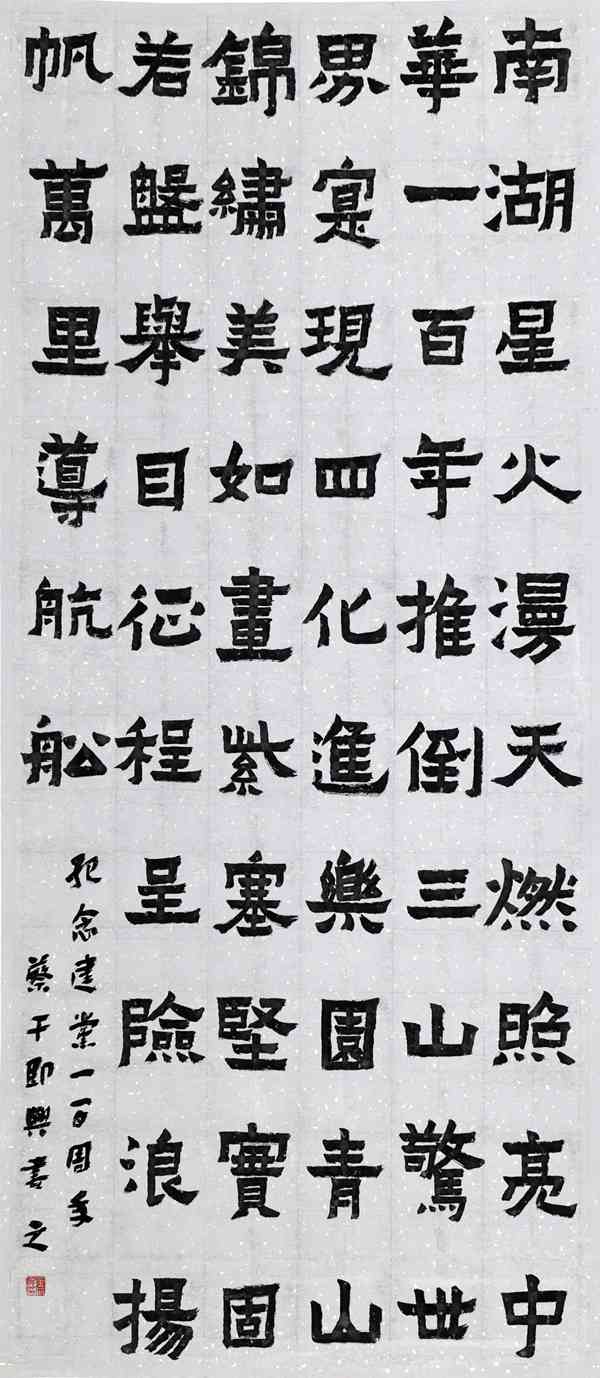 南湖星火漫天燃照亮中
華一百年推倒三山驚世
界寔現四化進樂園青山
錦繡美如畫紫塞堅實固
若盤舉目征程呈險浪揚
帆萬里導航舩
纪念建党一百周年
蔡干即興書之